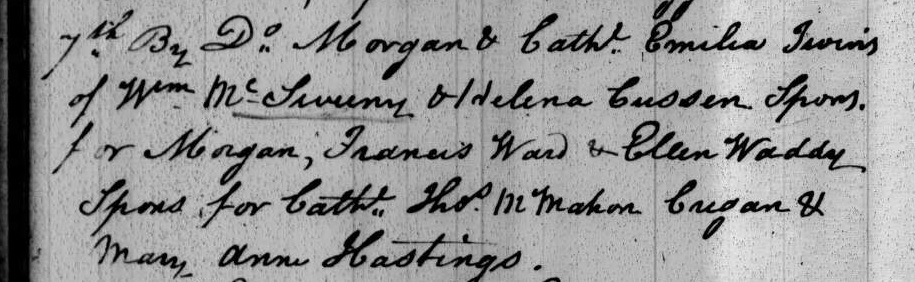 7th. By Do. Morgan & Catht. Emilia Twins
of Wm Mc Sweeny & Helena Cussen Spons.
for Morgan, Francis Ward & Ellen Waddy
Spons for Catht. Thos. McMahon Cregan &
Mary Anne Hastings.